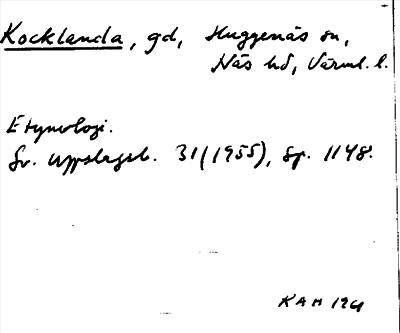 Kocklanda, gd, Huggenäs sn,
Näs hd, Värml. l.
Etymologi.
Sv. uppslagsb. 31(1955), sp. 1148.
KAH